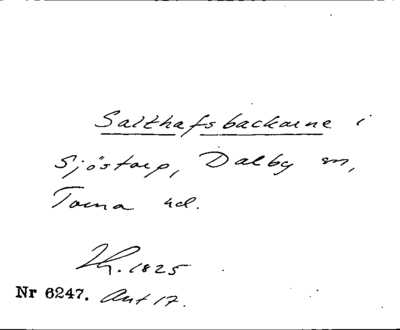 Salthafsbackarne i
Sjöstorp, Dalby sn,
Torna hd.
Th. 1825
Nr 6247. Ant 17.